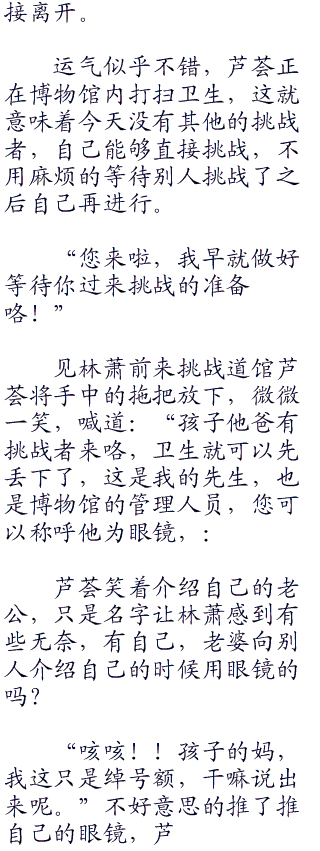 接离开。
运气似乎不错，芦荟正
在博物馆内打扫卫生，这就
意味着今天没有其他的挑战
者，自己能够直接挑战，不
用麻烦的等待别人挑战了之
后自己再进行。
“您来啦，我早就做好
等待你过来挑战的准备
咯！”
见林萧前来挑战道馆芦
荟将手中的拖把放下，微微
一笑，喊道：“孩子他爸有
挑战者来咯，卫生就可以先
丢下了，这是我的先生，也
是博物馆的管理人员，您可
以称呼他为眼镜，：
芦荟笑着介绍自己的老
公，只是名字让林萧感到有
些无奈，有自己，老婆向别
人介绍自己的时候用眼镜的
吗？
“咳咳！！孩子的妈，
我这只是绰号额，干嘛说出
来呢。”不好意思的推了推
自己的眼镜，芦